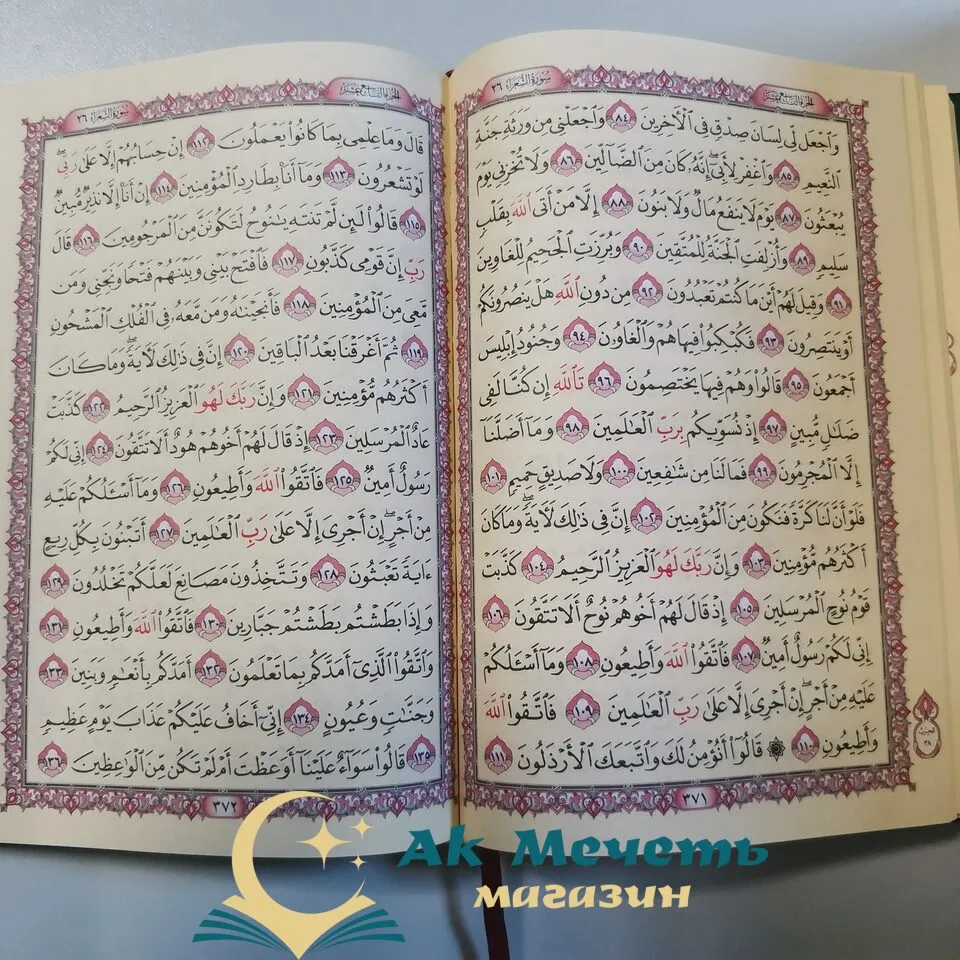 سُورَةُ الشُّعَرَاءِ ٢٦
الجزءُ التاسِعُ عَشَر
وَاجْعَل لِّي لِسَانَ صِدْقٍ فِي الْآخِرِينَ ٨٤ وَاجْعَلْنِي مِن وَرَثَةِ جَنَّةِ
النَّعِيمِ ٨٥ وَاغْفِرْ لِأَبِي إِنَّهُ كَانَ مِنَ الضَّالِّينَ ٨٦ وَلَا تُخْزِنِي يَوْمَ
يُبْعَثُونَ ٨٧ يَوْمَ لَا يَنفَعُ مَالٌ وَلَا بَنُونَ ٨٨ إِلَّا مَنْ أَتَى اللَّهَ بِقَلْبٍ
سَلِيمٍ ٨٩ وَأُزْلِفَتِ الْجَنَّةُ لِلْمُتَّقِينَ ٩٠ وَبُرِّزَتِ الْجَحِيمُ لِلْغَاوِينَ
٩١ وَقِيلَ لَهُمْ أَيْنَ مَا كُنتُمْ تَعْبُدُونَ ٩٢ مِن دُونِ اللَّهِ هَلْ يَنصُرُونَكُمْ
أَوْ يَنتَصِرُونَ ٩٣ فَكُبْكِبُوا فِيهَا هُمْ وَالْغَاوُونَ ٩٤ وَجُنُودُ إِبْلِيسَ
أَجْمَعُونَ ٩٥ قَالُوا وَهُمْ فِيهَا يَخْتَصِمُونَ ٩٦ تَاللَّهِ إِن كُنَّا لَفِي
ضَلَالٍ مُّبِينٍ ٩٧ إِذْ نُسَوِّيكُم بِرَبِّ الْعَالَمِينَ ٩٨ وَمَا أَضَلَّنَا
إِلَّا الْمُجْرِمُونَ ٩٩ فَمَا لَنَا مِن شَافِعِينَ ١٠٠ وَلَا صَدِيقٍ حَمِيمٍ ١٠١
فَلَوْ أَنَّ لَنَا كَرَّةً فَنَكُونَ مِنَ الْمُؤْمِنِينَ ١٠٢ إِنَّ فِي ذَلِكَ لَآيَةً وَمَا كَانَ
أَكْثَرُهُم مُّؤْمِنِينَ ١٠٣ وَإِنَّ رَبَّكَ لَهُوَ الْعَزِيزُ الرَّحِيمُ ١٠٤ كَذَّبَتْ
قَوْمُ نُوحٍ الْمُرْسَلِينَ ١٠٥ إِذْ قَالَ لَهُمْ أَخُوهُمْ نُوحٌ أَلَا تَتَّقُونَ ١٠٦
إِنِّي لَكُمْ رَسُولٌ أَمِينٌ ١٠٧ فَاتَّقُوا اللَّهَ وَأَطِيعُونِ ١٠٨ وَمَا أَسْأَلُكُمْ
عَلَيْهِ مِنْ أَجْرٍ إِنْ أَجْرِيَ إِلَّا عَلَى رَبِّ الْعَالَمِينَ ١٠٩ فَاتَّقُوا اللَّهَ
وَأَطِيعُونِ ١١٠ ۞ قَالُوا أَنُؤْمِنُ لَكَ وَاتَّبَعَكَ الْأَرْذَلُونَ ١١١
٣٧١
الحزب
٣٨
سُورَةُ الشُّعَرَاءِ ٢٦
الجزءُ التاسِعُ عَشَر
قَالَ وَمَا عِلْمِي بِمَا كَانُوا يَعْمَلُونَ ١١٢ إِنْ حِسَابُهُمْ إِلَّا عَلَى رَبِّي
لَوْ تَشْعُرُونَ ١١٣ وَمَا أَنَا بِطَارِدِ الْمُؤْمِنِينَ ١١٤ إِنْ أَنَا إِلَّا نَذِيرٌ مُّبِينٌ
١١٥ قَالُوا لَئِن لَّمْ تَنتَهِ يَا نُوحُ لَتَكُونَنَّ مِنَ الْمَرْجُومِينَ ١١٦ قَالَ
رَبِّ إِنَّ قَوْمِي كَذَّبُونِ ١١٧ فَافْتَحْ بَيْنِي وَبَيْنَهُمْ فَتْحًا وَنَجِّنِي وَمَن
مَّعِيَ مِنَ الْمُؤْمِنِينَ ١١٨ فَأَنجَيْنَاهُ وَمَن مَّعَهُ فِي الْفُلْكِ الْمَشْحُونِ
١١٩ ثُمَّ أَغْرَقْنَا بَعْدُ الْبَاقِينَ ١٢٠ إِنَّ فِي ذَلِكَ لَآيَةً وَمَا كَانَ
أَكْثَرُهُم مُّؤْمِنِينَ ١٢١ وَإِنَّ رَبَّكَ لَهُوَ الْعَزِيزُ الرَّحِيمُ ١٢٢ كَذَّبَتْ
عَادٌ الْمُرْسَلِينَ ١٢٣ إِذْ قَالَ لَهُمْ أَخُوهُمْ هُودٌ أَلَا تَتَّقُونَ ١٢٤ إِنِّي لَكُمْ
رَسُولٌ أَمِينٌ ١٢٥ فَاتَّقُوا اللَّهَ وَأَطِيعُونِ ١٢٦ وَمَا أَسْأَلُكُمْ عَلَيْهِ
مِنْ أَجْرٍ إِنْ أَجْرِيَ إِلَّا عَلَى رَبِّ الْعَالَمِينَ ١٢٧ أَتَبْنُونَ بِكُلِّ رِيعٍ
آيَةً تَعْبَثُونَ ١٢٨ وَتَتَّخِذُونَ مَصَانِعَ لَعَلَّكُمْ تَخْلُدُونَ ١٢٩
وَإِذَا بَطَشْتُم بَطَشْتُمْ جَبَّارِينَ ١٣٠ فَاتَّقُوا اللَّهَ وَأَطِيعُونِ ١٣١
وَاتَّقُوا الَّذِي أَمَدَّكُم بِمَا تَعْلَمُونَ ١٣٢ أَمَدَّكُم بِأَنْعَامٍ وَبَنِينَ ١٣٣
وَجَنَّاتٍ وَعُيُونٍ ١٣٤ إِنِّي أَخَافُ عَلَيْكُمْ عَذَابَ يَوْمٍ عَظِيمٍ
١٣٥ قَالُوا سَوَاءٌ عَلَيْنَا أَوَعَظْتَ أَمْ لَمْ تَكُن مِّنَ الْوَاعِظِينَ ١٣٦
٣٧٢
Ак Мечеть
магазин